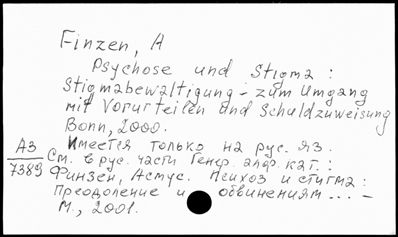 Finzen, A
Psychose und Stigma :
Stigmabewältigung - zum Umgang
mit Vorurteilen und Schuldzuweisung
Bonn, 2000.
Имеется только на рус. яз.
АЗ
7389
См. в рус. части Генер. алф. кат. :
Финзен, Асмус. Психоз и стигма :
Преодоление и обвинениям ... -
М., 2001.